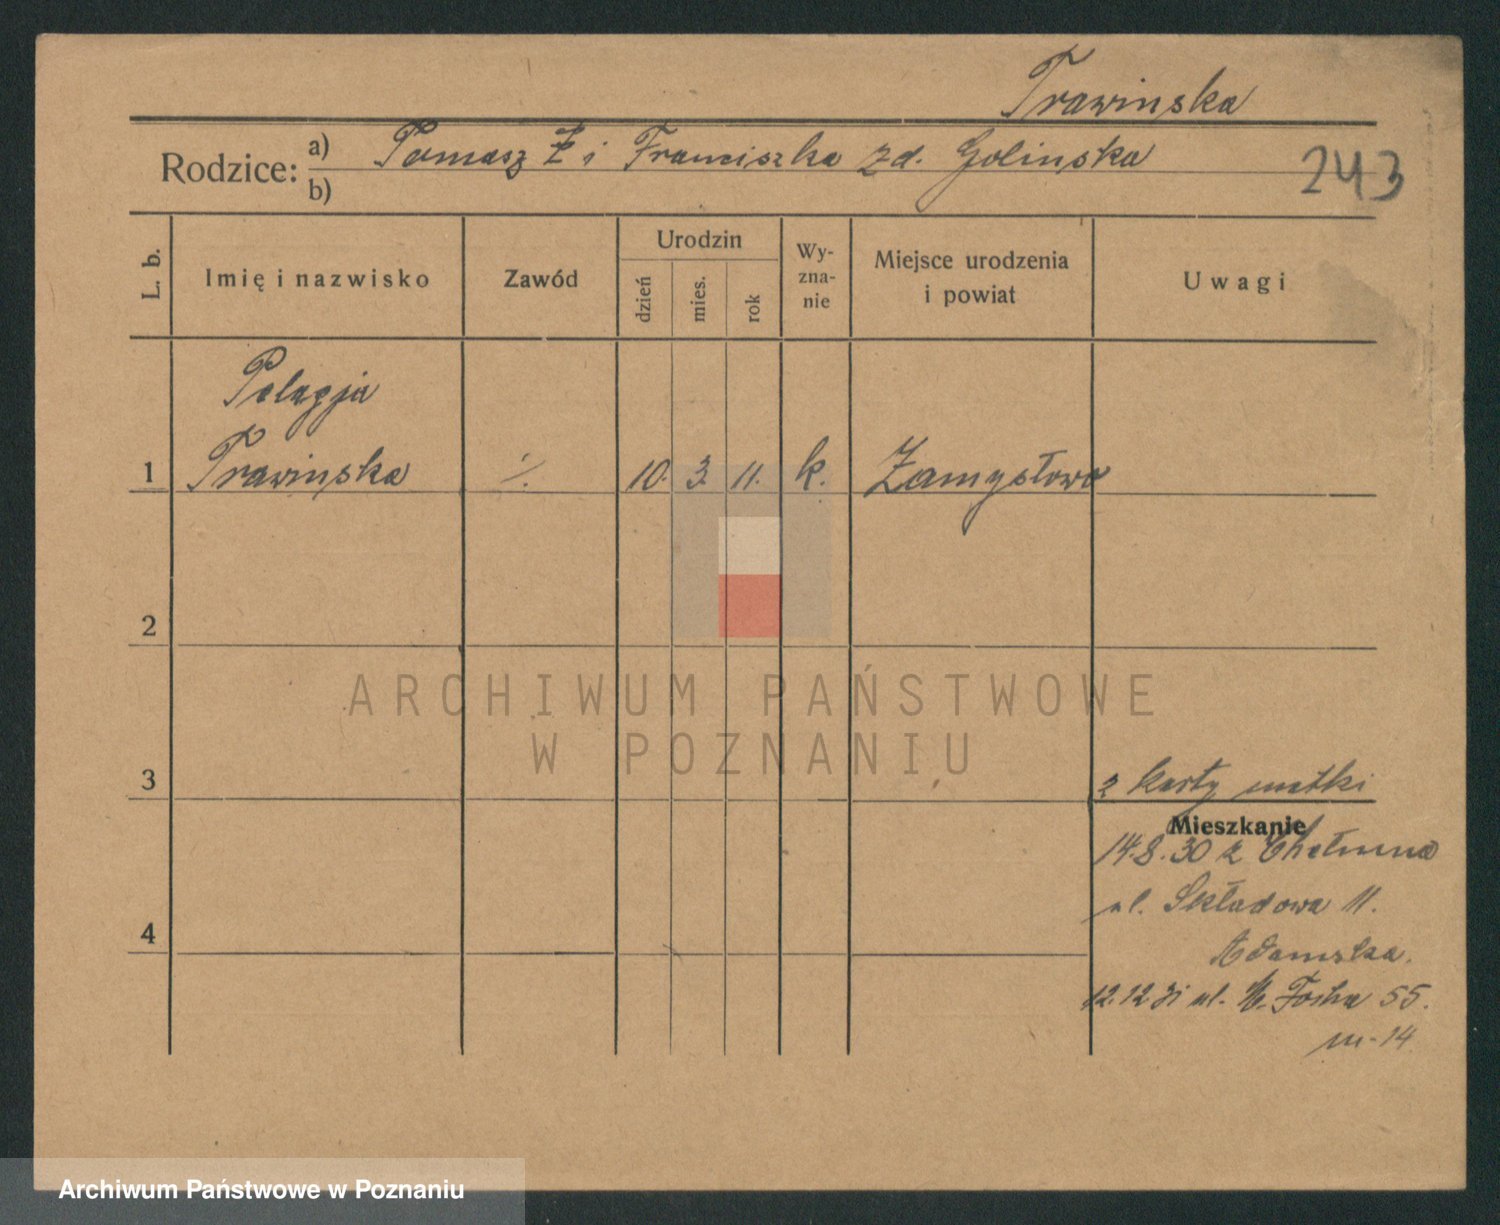 Trawinska
Rodzice: a) Tomasz Ł i Franciszka zd. Golinska
b)
243
L. b.
Imię i nazwisko
Zawód
Urodzin
dzień
mies.
rok
Wy-
zna-
nie
Miejsce urodzenia
i powiat
Uwagi
Pelagja
1 Trawinska ./. 10. 3. 11. k. Zamysłowo
2
ARCHIWUM PAŃSTWOWE
W POZNANIU
3
z karty matki
Mieszkanie
14.8.30 z Chełmna
ul. Składowa 11.
4
Adamska.
12.12 31 ul. M. Focha 55.
m. 14
Archiwum Państwowe w Poznaniu